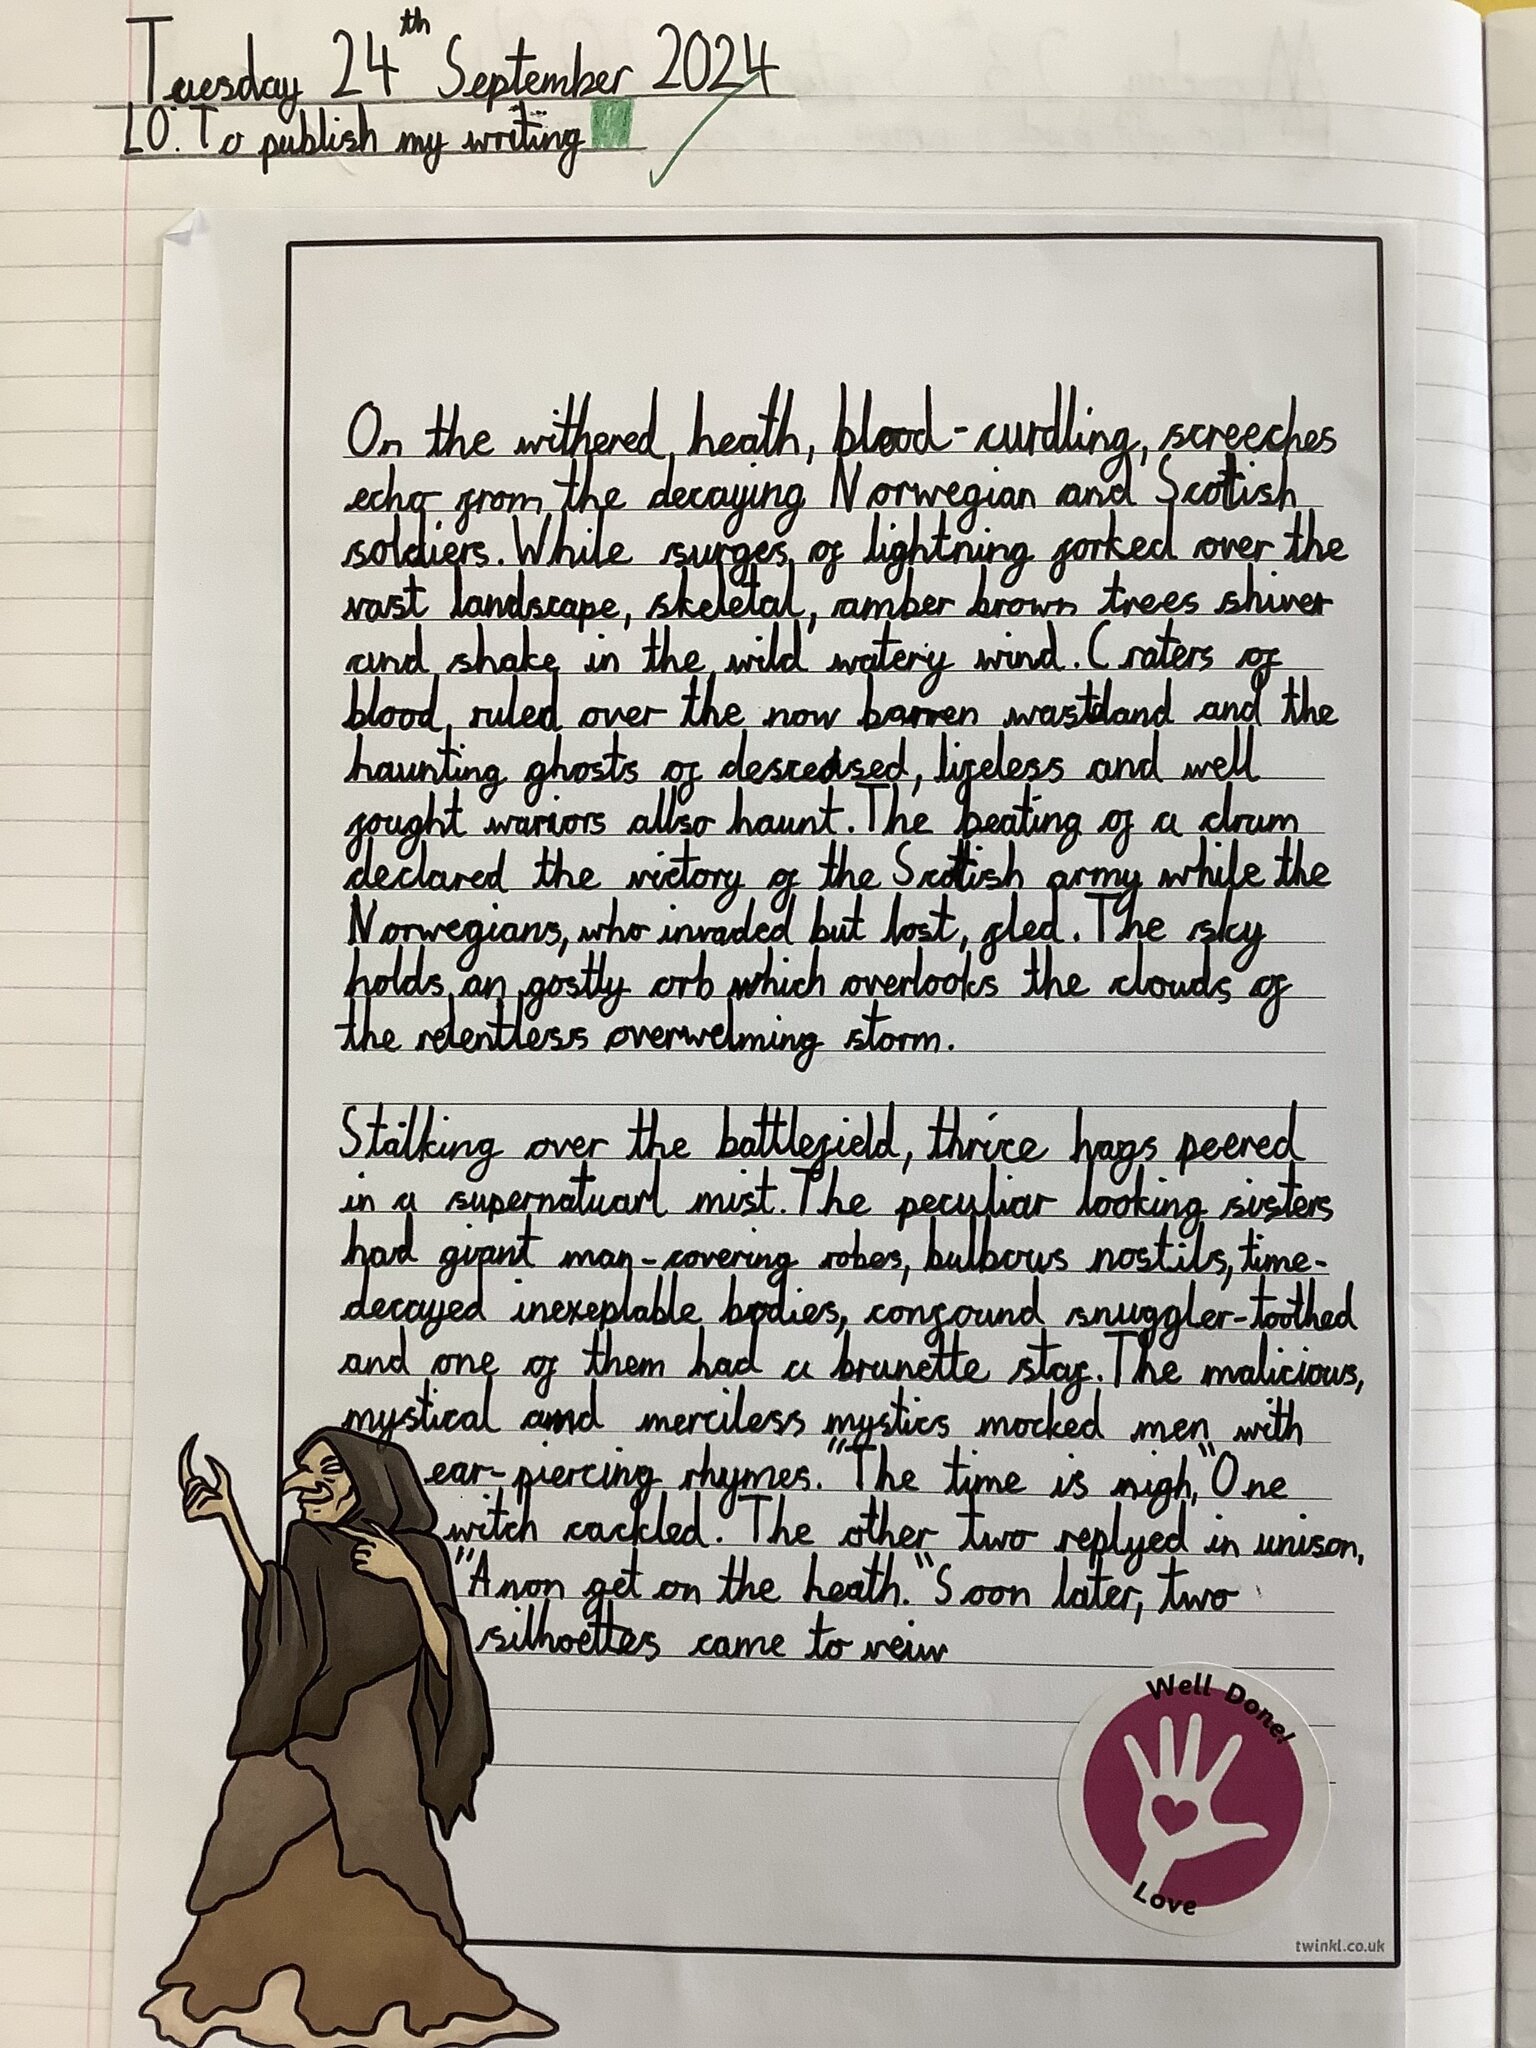 Tuesday 24th September 2024
LO: To publish my writing
On the withered heath, blood-curdling, screeches
echo from the decaying Norwegian and Scottish
soldiers. While surges of lightning forked over the
vast landscape, skeletal, amber brown trees shiver
and shake in the wild watery wind. Craters of
blood ruled over the now barren wasteland and the
haunting ghosts of desceased, lifeless and well
fought warriors allso haunt. The beating of a drum
declared the victory of the Scottish army while the
Norwegians, who invaded but lost, fled. The sky
holds an gostly orb which overlooks the clouds of
the relentless overwelming storm.
Stalking over the battlefield, thrice hags peered
in a supernatuarl mist. The peculiar looking sisters
had giant man-covering robes, bulbous nostils, time-
decayed inexeplable bodies, confound snuggler-toothed
and one of them had a brunette staf. The malicious,
mystical amd merciless mystics mocked men with
ear-piercing rhymes. "The time is nigh," One
witch cackled. The other two replyed in unison,
"Anon get on the heath." Soon later, two
silhoettes came to veiw
Well Done!
Love
twinkl.co.uk